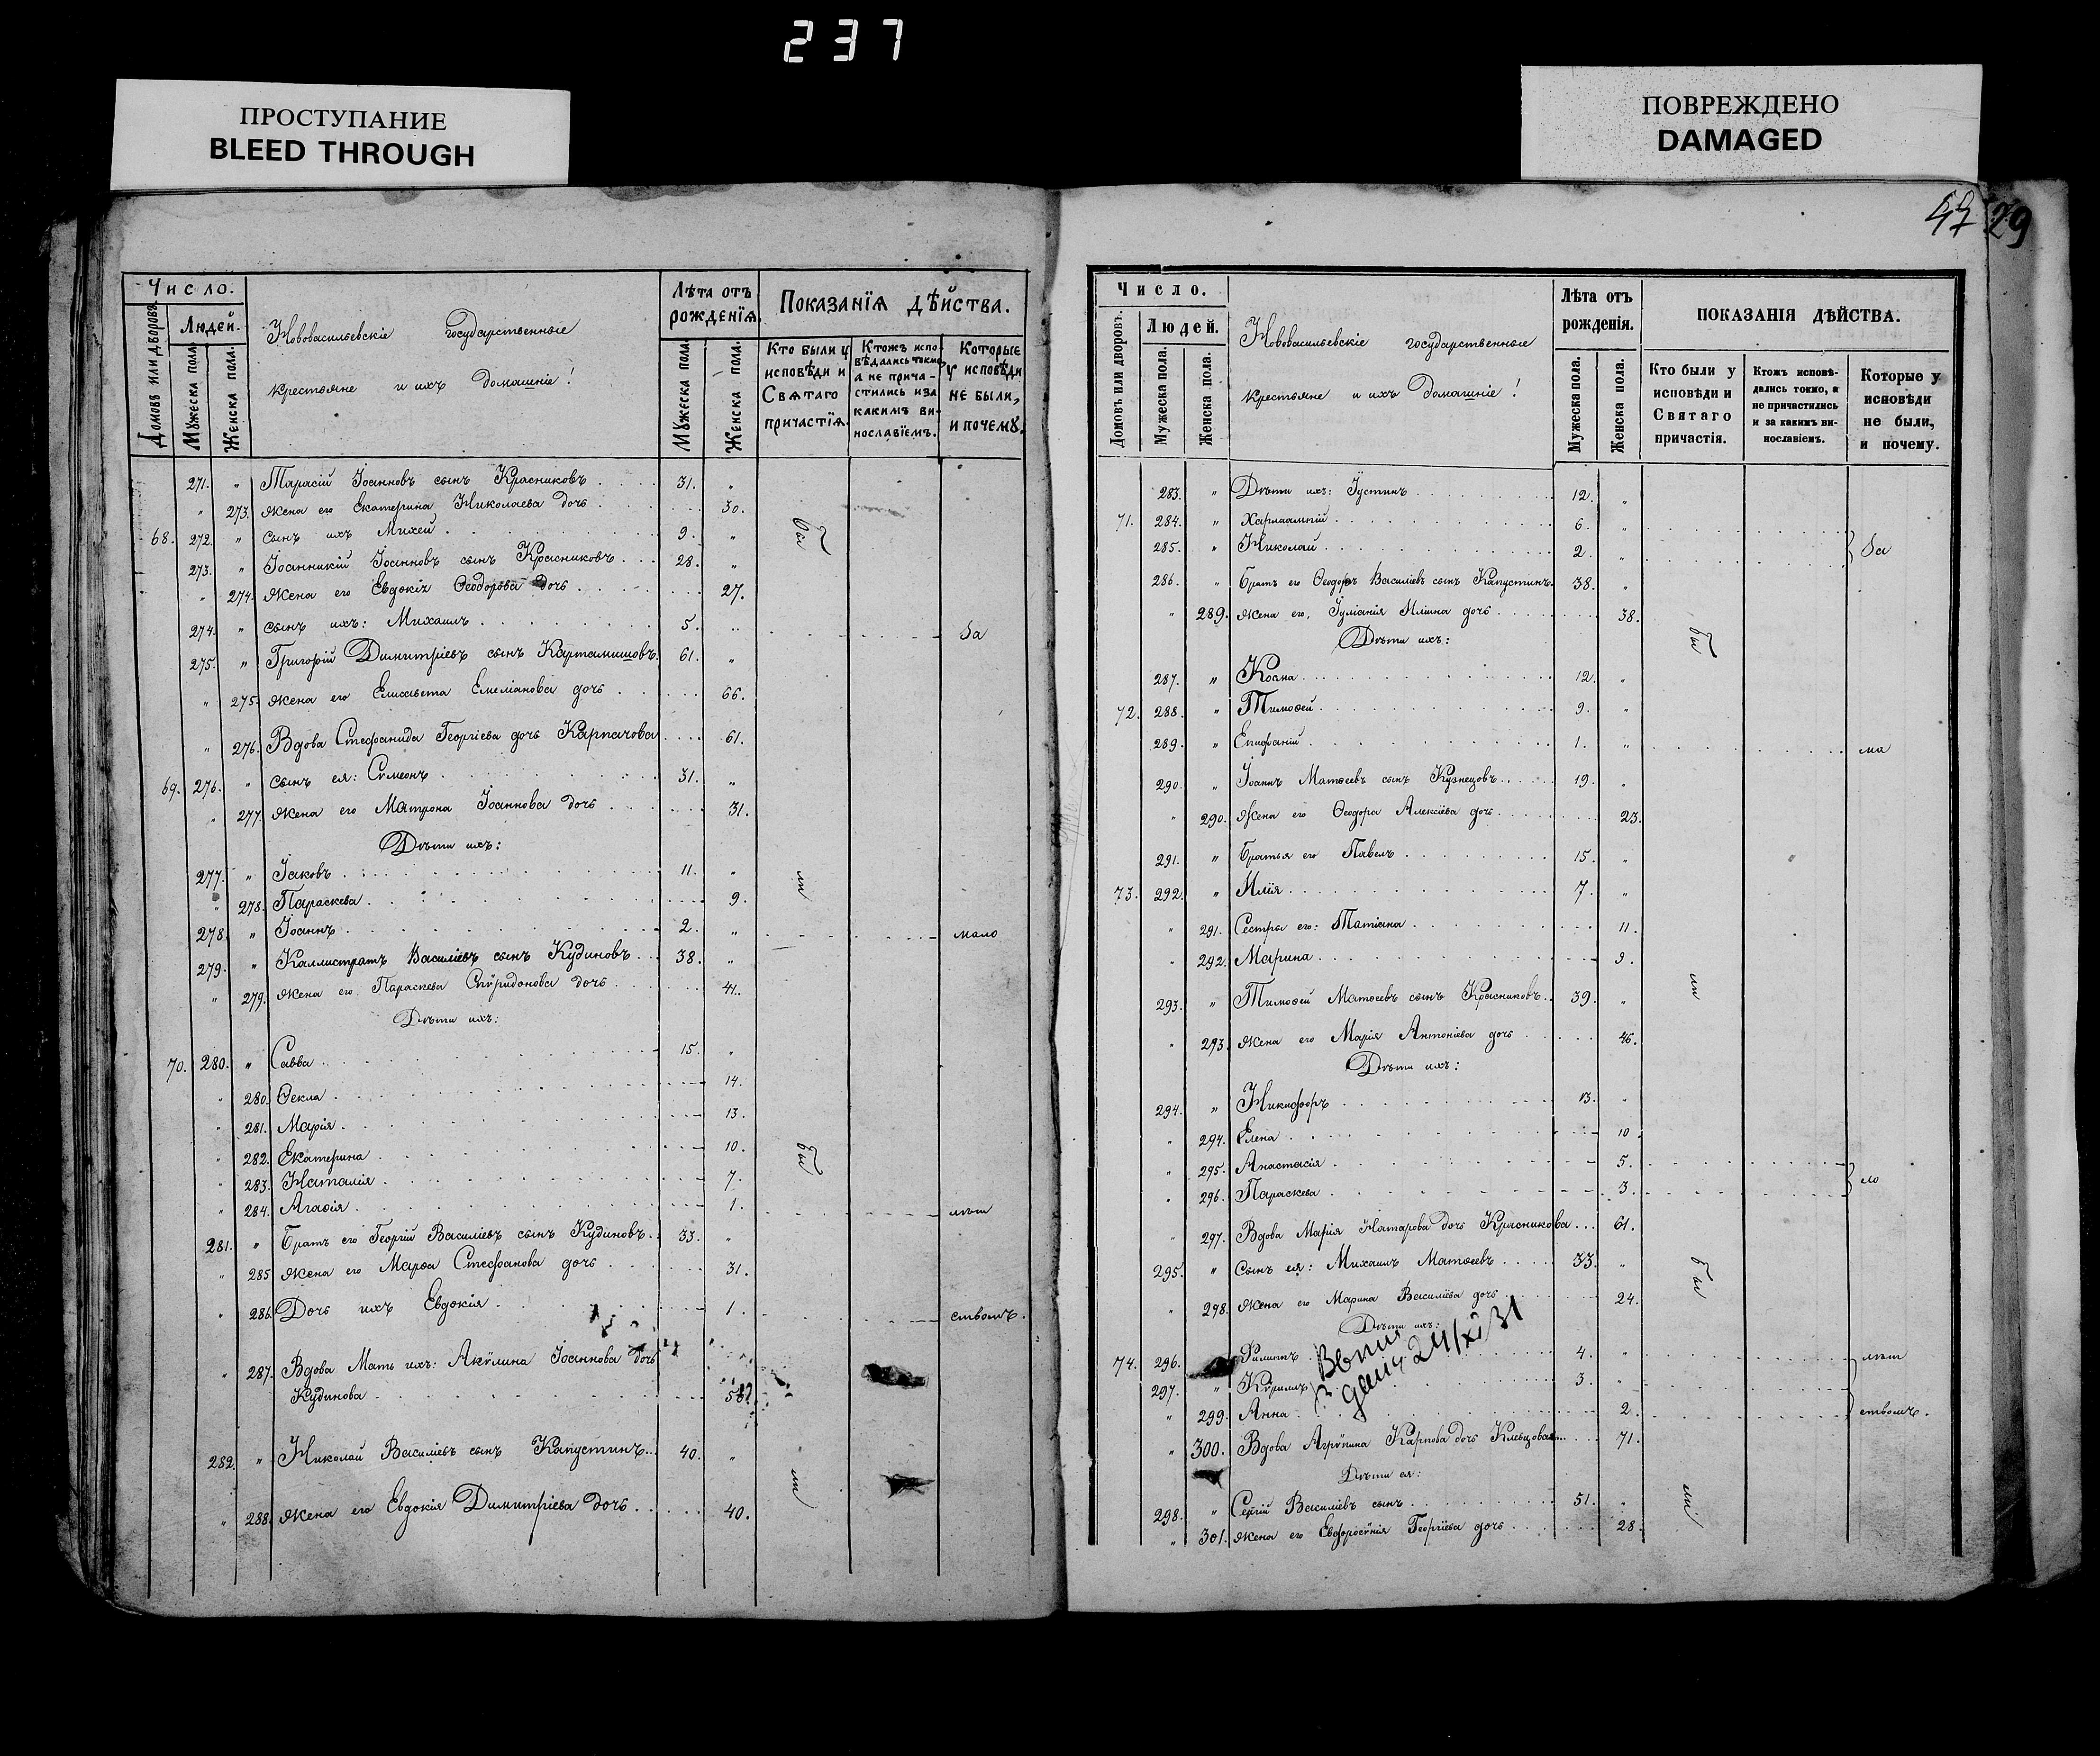 237
ПРОСТУПАНИЕ
BLEED THROUGH
ПОВРЕЖДЕНО
DAMAGED
29
Число.
Домовъ или дворовъ.
Людей.
Мужеска пола.
Женска пола.
Нововасильевскіе государственные
крестьяне и ихъ домашніе!
Лѣта отъ рожденія.
Мужеска пола.
Женска пола.
Показанія дѣйства.
Кто были у исповѣди и Святаго причастія.
Ктожъ исповѣдались токмо, а не причастились и за какимъ винословіемъ.
Которые у исповѣди не были, и почему.
271. " Тарасій Іоанновъ сынъ Красниковъ 31. "
" 273. жена его Екатерина Николаева дочь 30.
68. 272. " сынъ ихъ Михей 9. " бы
273. " Іоанникій Іоанновъ сынъ Красниковъ 28. "
" 274. жена его Евдокія Ѳеодорова дочь 27.
274. " сынъ ихъ: Михаилъ 5. " за
275. " Григорій Димитріевъ сынъ Картамишовъ 61. "
" 275. жена его Елисавета Емеліанова дочь 66.
" 276. Вдова Стефанида Георгіева дочь Карпачова 61.
69. 276. " сынъ ея: Сѵмеонъ 31. "
" 277. жена его Матрона Іоаннова дочь 31.
Дѣти ихъ:
277. " Іаковъ 11. " ли
" 278. Параскева 9.
278. " Іоаннъ 2. " мало
279. " Каллистратъ Василіевъ сынъ Кудиновъ 38. "
" 279. жена его Параскева Спѵридонова дочь 41.
Дѣти ихъ:
70. 280. " Савва 15. "
" 280. Ѳекла 14.
" 281. Марія 13.
" 282. Екатерина 10. бы
" 283. Наталія 7.
" 284. Агаѳія 1. лѣт
281. " Братъ его Георгій Василіевъ сынъ Кудиновъ 33. "
" 285 жена его Марѳа Стефанова дочь 31.
" 286. Дочь ихъ Евдокія 1. ствомъ.
" 287. Вдова Мать ихъ: Акѵлина Іоаннова дочь
Кудинова
282. " Николай Василіевъ сынъ Капустинъ 40. " ли
" 288. жена его Евдокія Димитріева дочь 40.
Число.
Домовъ или дворовъ.
Людей.
Мужеска пола.
Женска пола.
Нововасильевскіе государственные
крестьяне и ихъ домашніе!
Лѣта отъ рожденія.
Мужеска пола.
Женска пола.
ПОКАЗАНІЯ ДѢЙСТВА.
Кто были у исповѣди и Святаго причастія.
Ктожъ исповѣдались токмо, а не причастились и за какимъ винословіемъ.
Которые у исповѣди не были, и почему.
283. " Дѣти ихъ: Іустинъ 12. "
71. 284. " Харлампій 6. "
285. " Николай 2. " за
286. " Братъ его Ѳеодоръ Василіевъ сынъ Капустинъ 38. "
" 289. жена его, Іуліанія Иліина дочь 38.
Дѣти ихъ: бы
287. " Косма 12. "
72. 288. " Тимоѳей 9. "
289. " Епифаній 1. " ма
290. " Іоаннъ Матѳеевъ сынъ Кузнецовъ 19. "
" 290. Жена его Ѳеодора Алексіева дочь 23.
291. " Братья его Павелъ 15. "
73. 292. " Илія 7. "
" 291. Сестры его: Татіана 11.
" 292. Марина 9.
293. " Тимоѳей Матѳеевъ сынъ Красниковъ 39. " ли
" 293. жена его Марія Антоніева дочь 46.
Дѣти ихъ:
294. " Никифоръ 13. "
" 294. Елена 10
" 295. Анастасія 5.
" 296. Параскева 3. ло
" 297. Вдова Марія Натарова дочь Красникова 61.
295. " Сынъ ея: Михаилъ Матѳеевъ 33. " бы
" 298. жена его Марина Василіева дочь 24.
Дѣти ихъ:
74. 296. Филиппъ 4. " лѣт
297. " Кѵриллъ 3. "
" 299. Анна 2. ствомъ.
24/XI 31
" 300. Вдова Агрѵпина Карпова дочь 71.
Дѣти ея:
298. " Сергій Василіевъ сынъ 51. " ли
" 301. жена его Евфросѵнія Георгіева дочь 28.